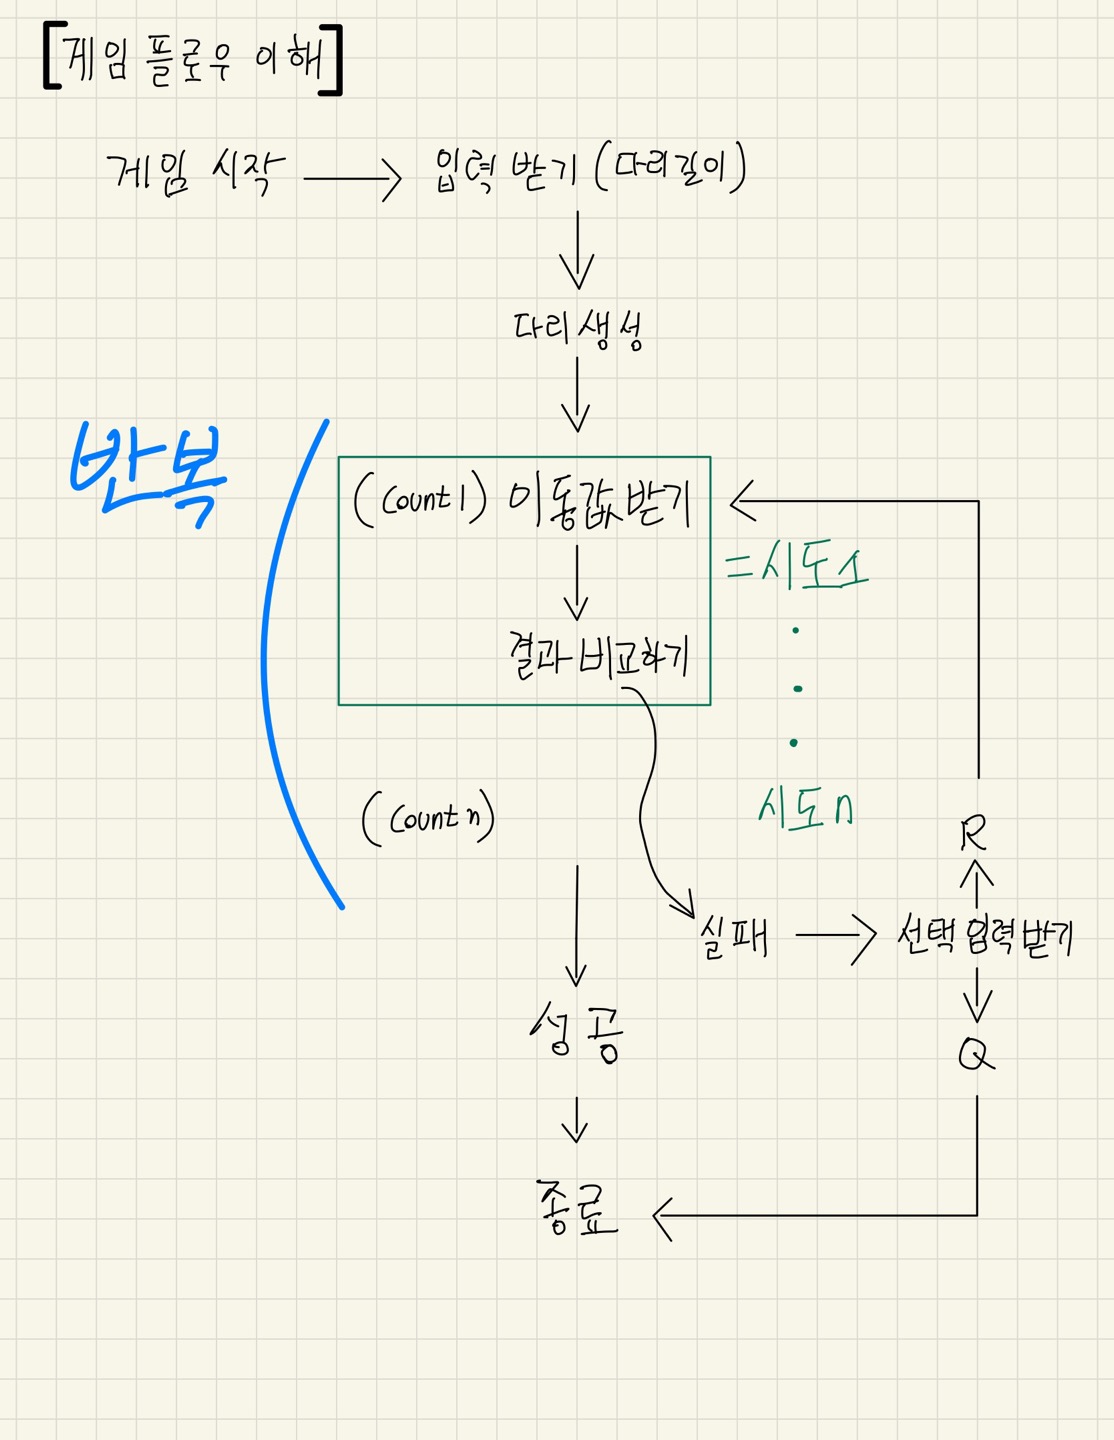 [게임 플로우 이해]
게임 시작 → 입력 받기 (다리길이)
다리 생성
반복
(count 1) 이동값 받기
= 시도 1
결과 비교하기
(count n)
시도 n
R
실패 → 선택 입력 받기
성공
Q
종료